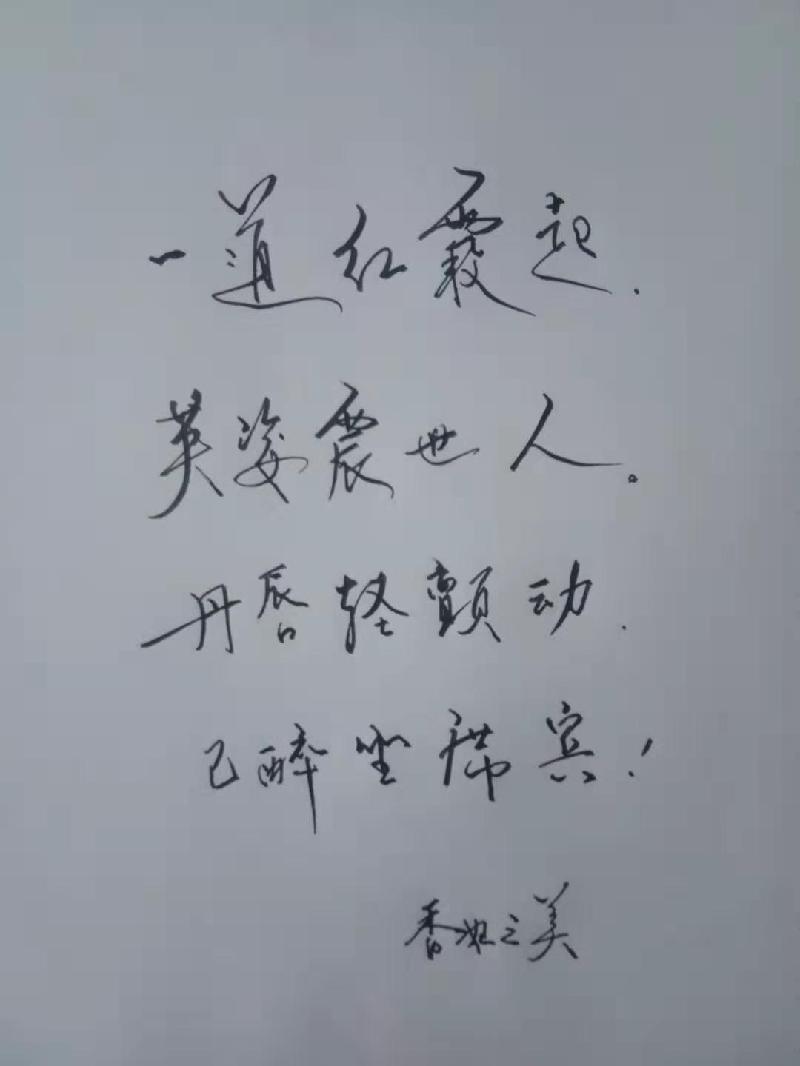 一道红霞起.
英姿震世人。
丹唇轻颤动.
已醉坐席宾！
香妃之美